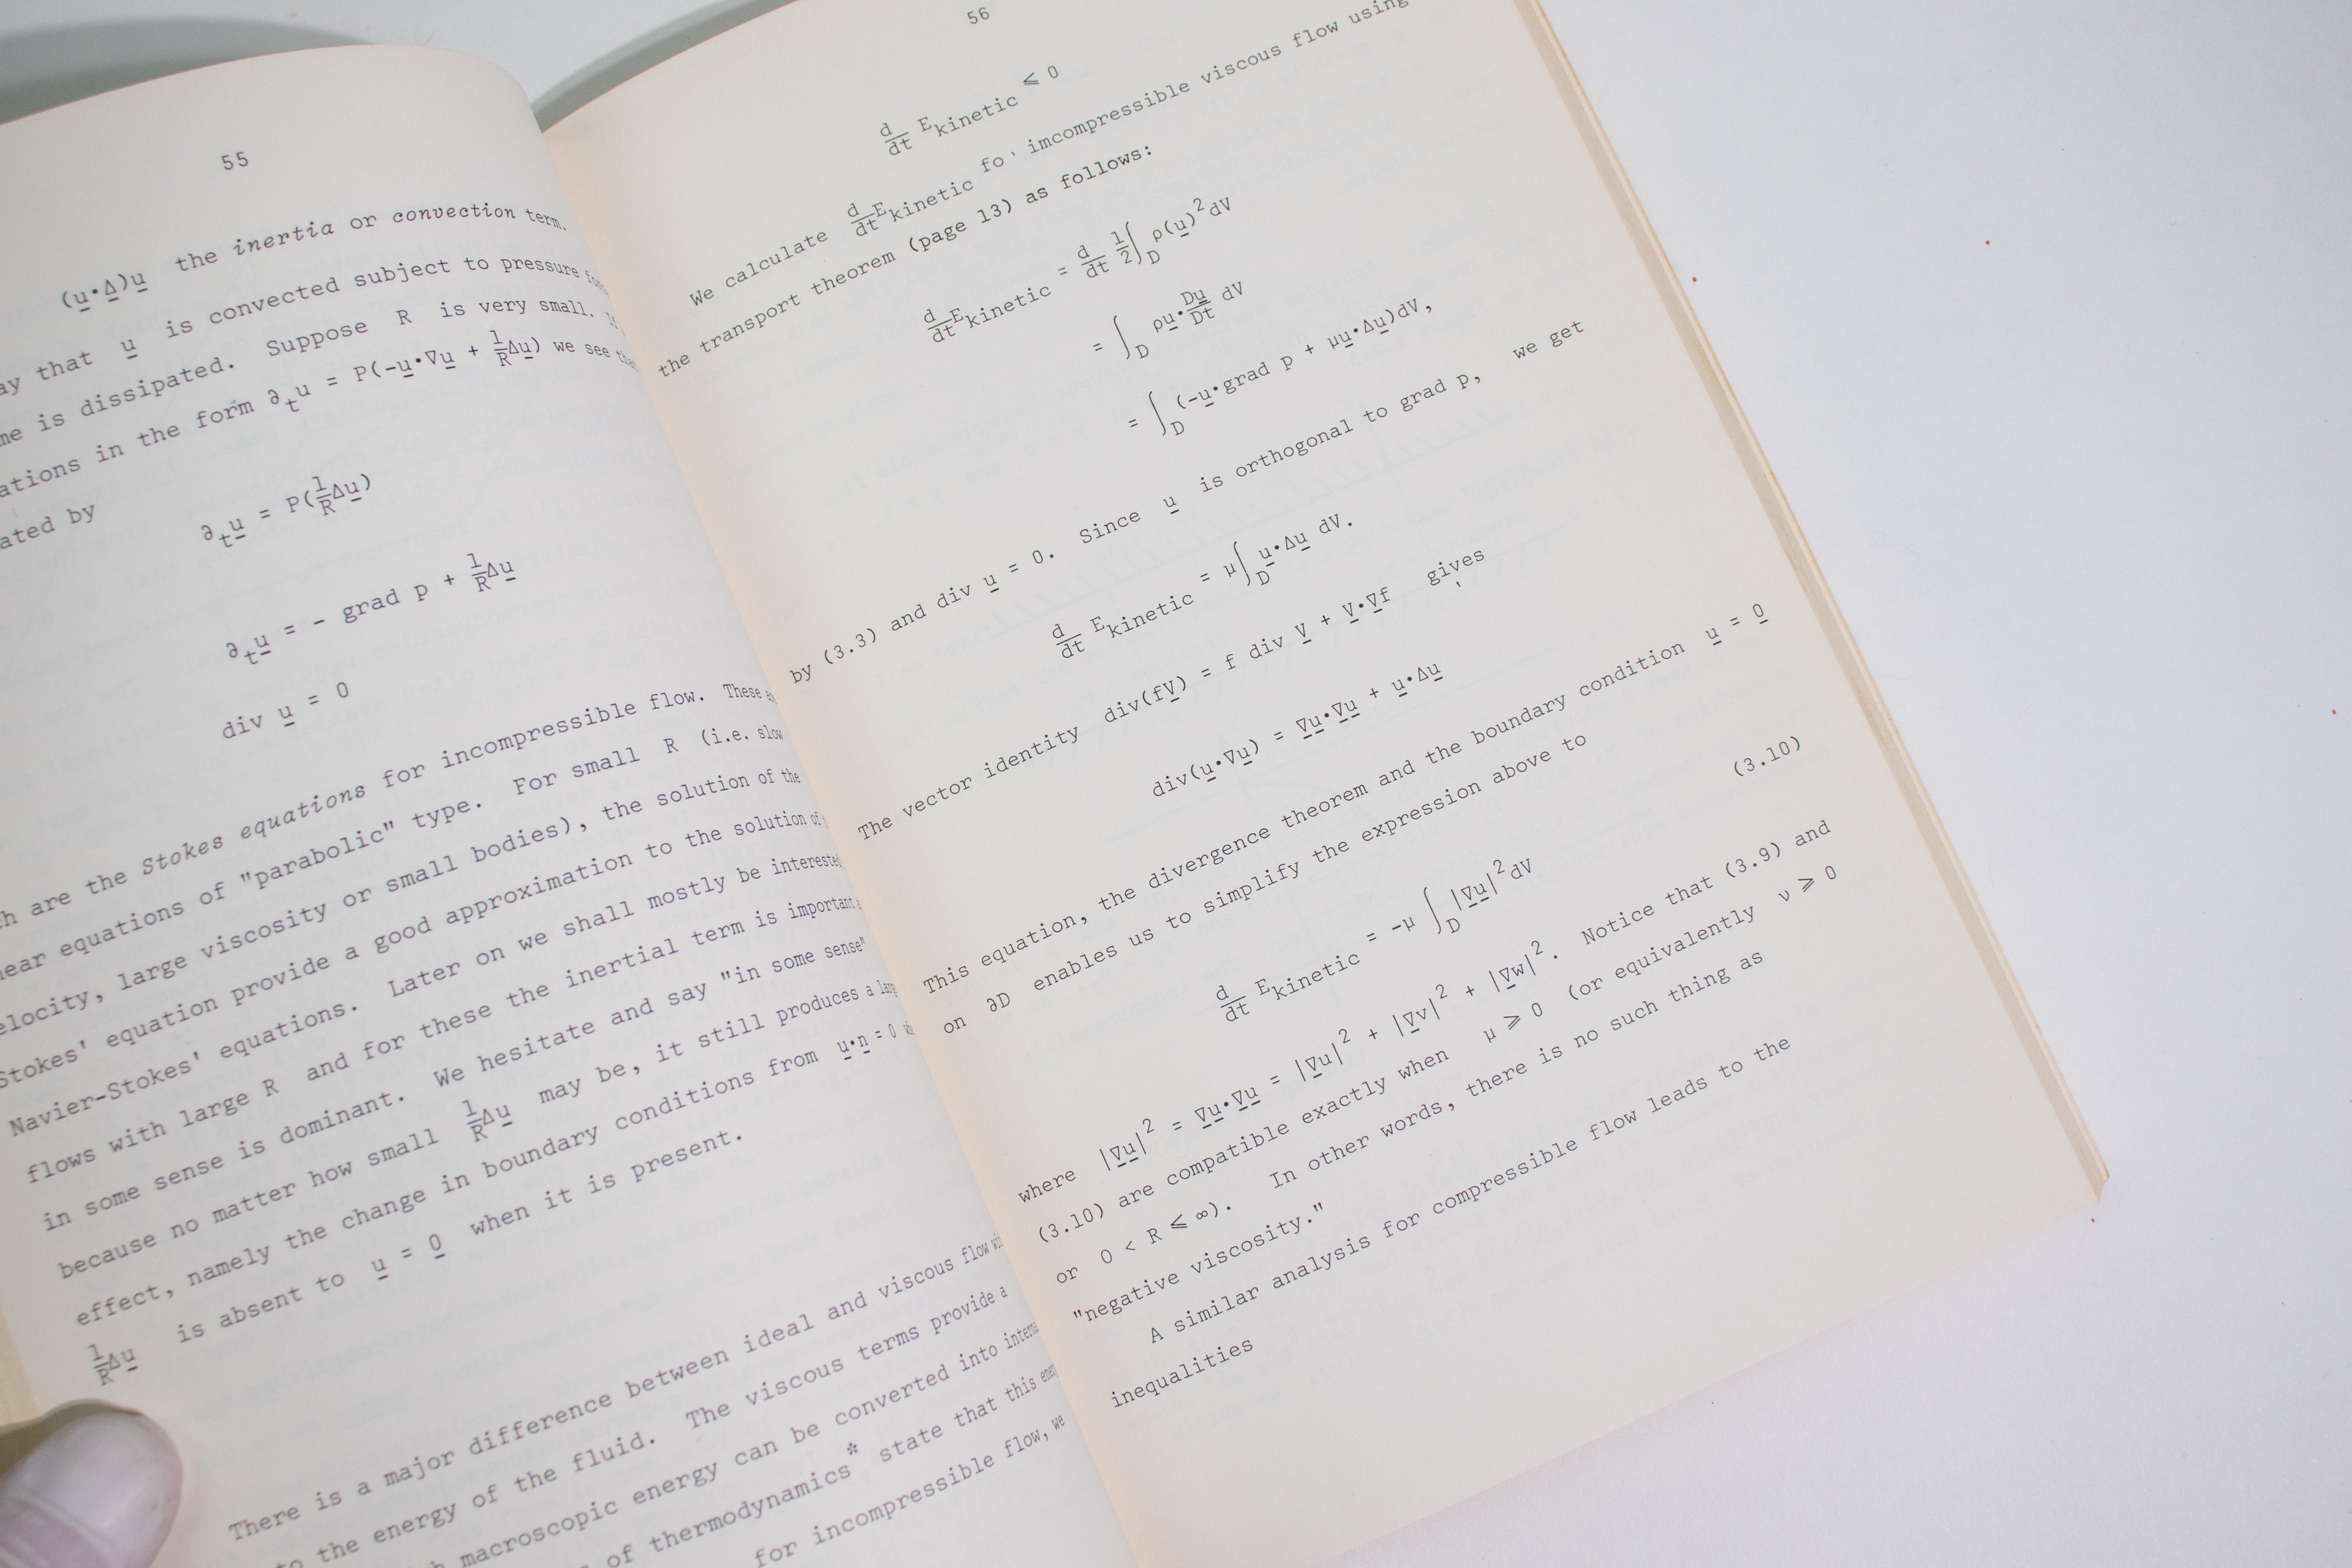 55
(u·Δ)u the inertia or convection term.
that u is convected subject to pressure
is dissipated. Suppose R is very small.
in the form ∂ₜu = P(-u·∇u + 1/R Δu) we see
by
∂ₜu = P(1/R Δu)
∂ₜu = - grad p + 1/R Δu
div u = 0
are the Stokes equations for incompressible flow. These
equations of "parabolic" type. For small R (i.e. slow
large viscosity or small bodies), the solution of the
Stokes' equation provide a good approximation to the solution of
Navier-Stokes' equations. Later on we shall mostly be
flows with large R and for these the inertial term is important
in some sense is dominant. We hesitate and say "in some sense"
because no matter how small 1/R Δu may be, it still produces a
effect, namely the change in boundary conditions from u·n = 0
1/R Δu is absent to u = 0 when it is present.
There is a major difference between ideal and viscous flow
the energy of the fluid. The viscous terms provide a
macroscopic energy can be converted into
of thermodynamics* state that this
for incompressible flow, we
56
d/dt E_kinetic ⩽ 0
We calculate d/dt E_kinetic fo' imcompressible viscous flow using
the transport theorem (page 13) as follows:
d/dt E_kinetic = d/dt 1/2 ∫_D ρ(u)² dV
= ∫_D ρu·Du/Dt dV
= ∫_D (-u·grad p + μu·Δu)dV,
by (3.3) and div u = 0. Since u is orthogonal to grad p, we get
d/dt E_kinetic = μ∫_D u·Δu dV.
The vector identity div(fV) = f div V + V·∇f gives
div(u·∇u) = ∇u·∇u + u·Δu
This equation, the divergence theorem and the boundary condition u = 0
on ∂D enables us to simplify the expression above to
d/dt E_kinetic = -μ ∫_D |∇u|² dV (3.10)
where |∇u|² = ∇u·∇u = |∇u|² + |∇v|² + |∇w|². Notice that (3.9) and
(3.10) are compatible exactly when μ ⩾ 0 (or equivalently ν ⩾ 0
or 0 < R ⩽ ∞). In other words, there is no such thing as
"negative viscosity."
A similar analysis for compressible flow leads to the
inequalities